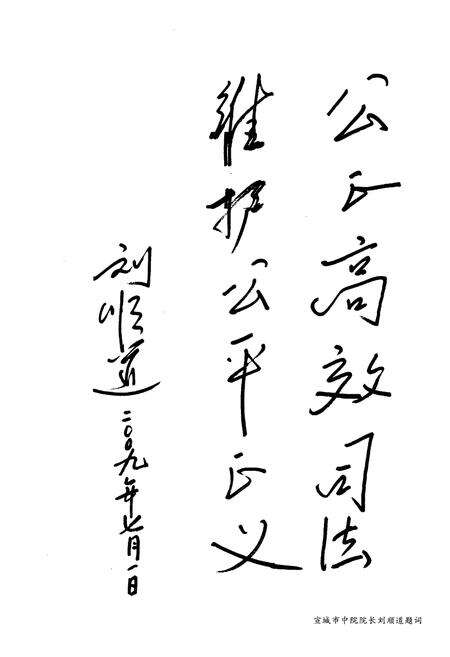 公正高效司法
维护公平正义
刘顺道
二〇〇九年七月一日
宣城市中院院长刘顺道题词